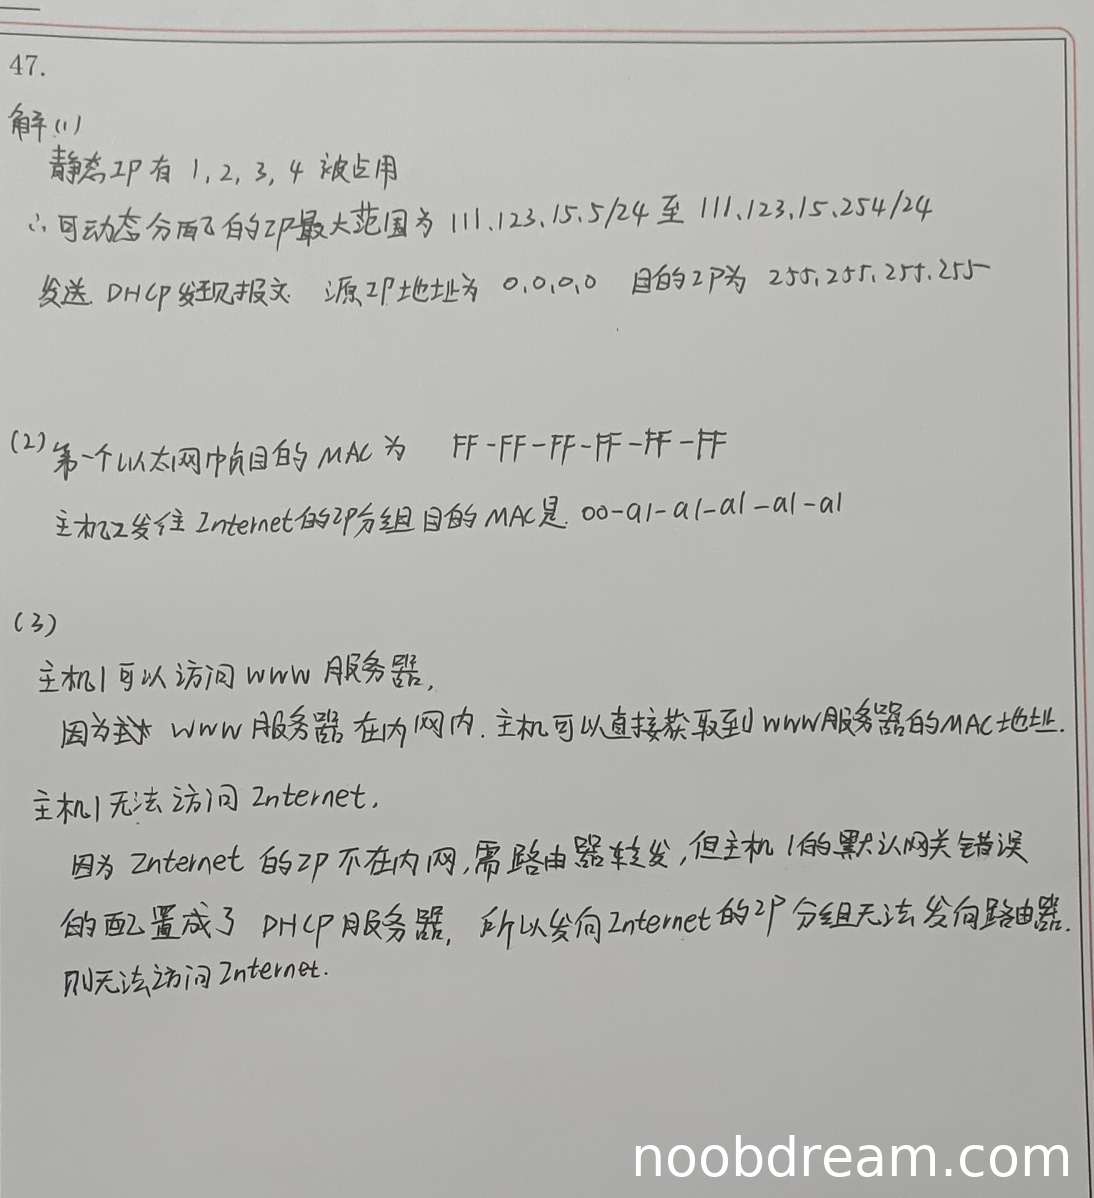 47.
解(1)
静态IP有 1, 2, 3, 4 被占用
∴可动态分配的IP最大范围为 111.123.15.5/24 至 111.123.15.254/24
发送 DHCP发现报文 源IP地址为 0.0.0.0 目的IP为 255.255.255.255
(2) 第一个以太网帧目的MAC为 FF-FF-FF-FF-FF-FF
主机2发往Internet的IP分组目的MAC是 00-a1-a1-a1-a1-a1
(3)
主机1可以访问WWW服务器,
因为 WWW服务器在内网内. 主机可以直接获取到WWW服务器的MAC地址.
主机1无法访问Internet,
因为Internet的IP不在内网,需路由器转发,但主机1的默认网关错误
的配置成了 DHCP服务器, 所以发向Internet的IP分组无法发向路由器.
则无法访问Internet.
noobdream.com